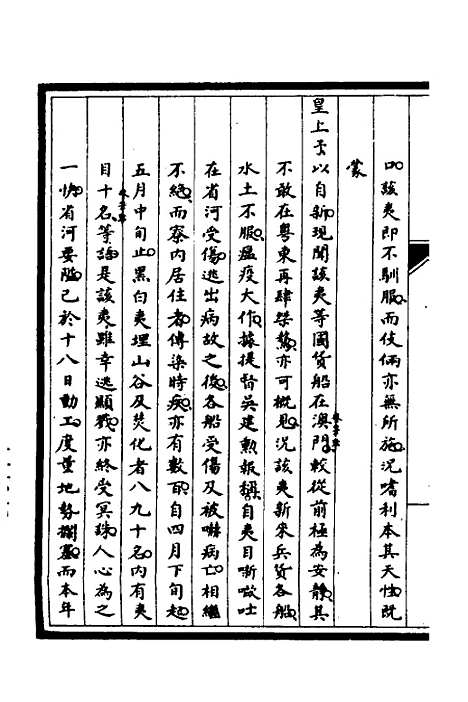 口該夷即不馴服而伎倆亦無所施況嗜利本其天性既
蒙
皇上予以自新現聞該夷等國貨船在澳門較從前極為安靜其
不敢在粵東再肆桀驁亦可概見況該夷新來兵貨各船
水土不服瘟疫大作據提督吳建勳報稱自夷目嘶噉吐
在省河受傷逃出病故之後各船受傷及被嚇病亡相繼
不絕而寮內居住者傳染時疾亦有數百自四月下旬起
五月中旬止黑白夷埋山谷及焚化者八九十名內有夷
目十名等語是該夷雖幸逃顯戮亦終受冥誅人心為之
一快省河要隘已於十八日動工度量地勢攔塞而本年